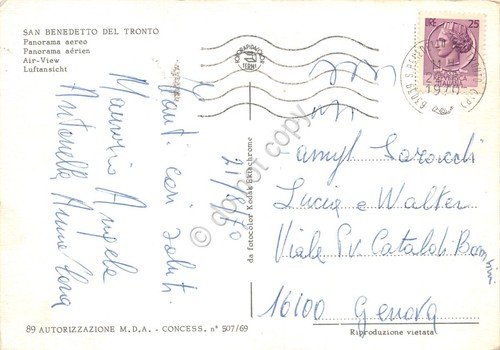 SAN BENEDETTO DEL TRONTO
Panorama aereo
Panorama aérien
Air-View
Luftansicht
25
1970
21/7/70
Tanti cari saluti
Maurizio Angela
Antonella Anna
da fotocolor Kodak Ektachrome
Lucia e Walter
Viale
16100 Genova
89 AUTORIZZAZIONE M.D.A. - CONCESS. n° 507/69
Riproduzione vietata